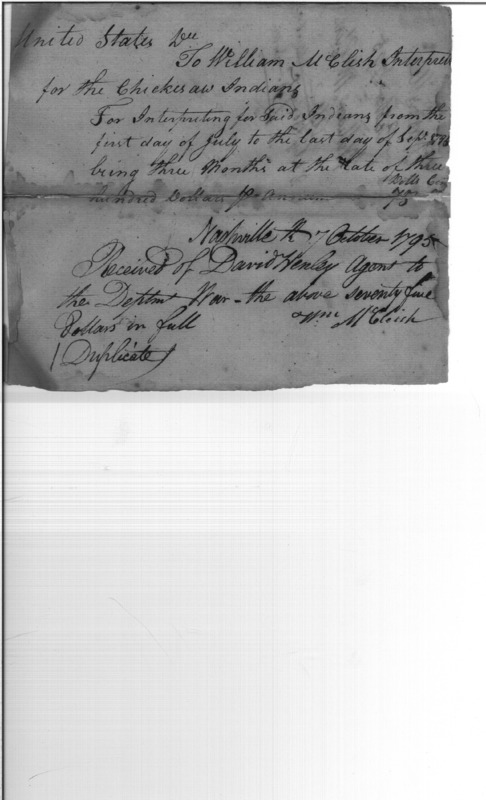 United States Dr
To William McClish Interpreter
for the Chickesaw Indians
For Interpreting for Said Indians from the
first day of July to the last day of Sept
being three Months at the rate of three
Dolls
hundred Dollars P Annum 75
Nashville th 7 October 1795
Received of David Henley Agent to
the Deptmt War - the above seventy five
Dollars in full Wm McClish
(Duplicate)